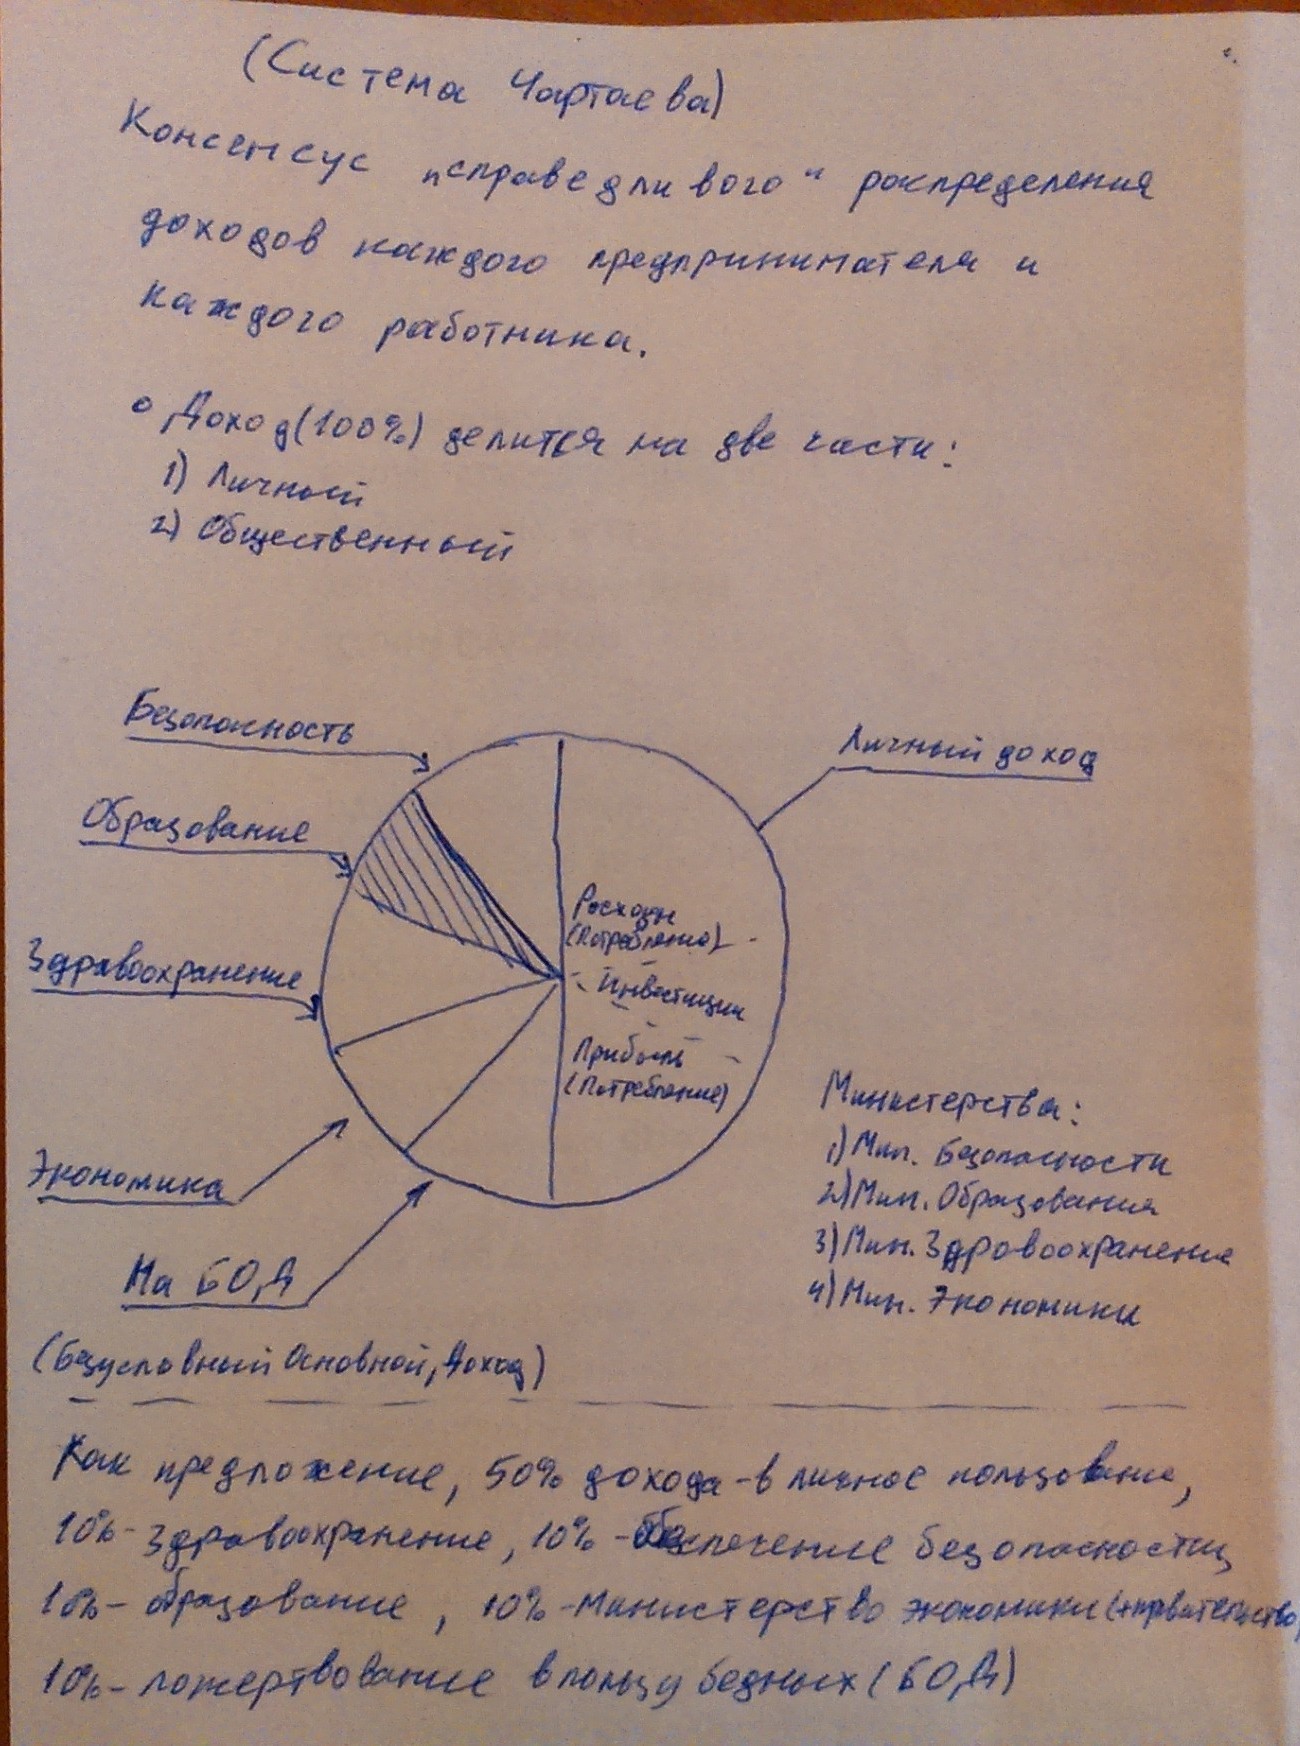 (Система Чартаева)
Консенсус "справедливого" распределения
доходов каждого предпринимателя и
каждого работника.
Доход (100%) делится на две части:
1) Личный
2) Общественный
Безопасность
Образование
Здравоохранение
Экономика
На БОД
(Безусловный Основной Доход)
Личный доход
Расходы
(Потребление)
Инвестиции
Прибыль
(Потребление)
Министерства:
1) Мин. Безопасности
2) Мин. Образования
3) Мин. Здравоохранение
4) Мин. Экономики
Как предложение, 50% дохода - в личное пользование,
10% - Здравоохранение, 10% - обеспечение безопасности,
10% - образование, 10% - Министерство экономики (+правительство)
10% - пожертвование в пользу бедных (БОД)